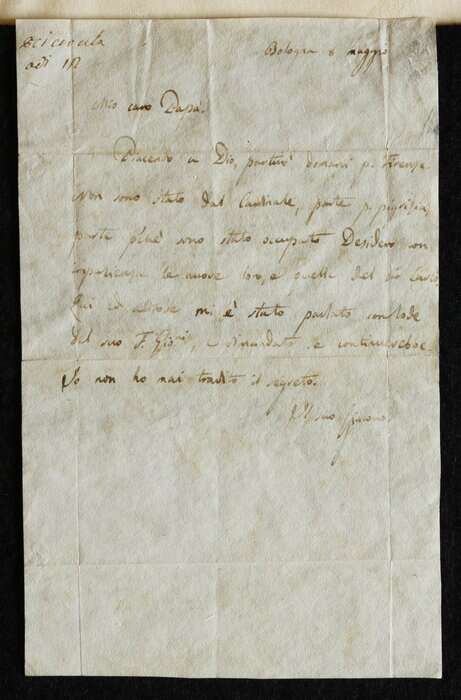 Bologna 8 maggio
Mio caro Papà.
Piacendo a Dio, partirò domani p. Firenze
Non sono stato dal Cardinale, parte p. pigrizia,
parte p.chè sono stato occupato Desidero con
impazienza le nuove loro, e quelle del
Qui ed altrove mi è stato parlato con lode
del suo e dimandato se continuerebbe
Io non ho mai tradito il segreto.
Il suo Giacomo